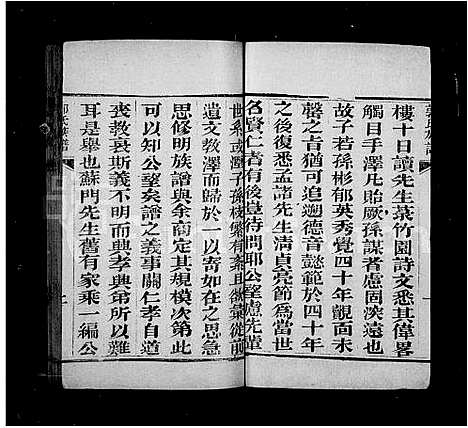 樓十日讀先生菉竹園詩文悉其偉畧
觸目手澤凡貽厥孫謀者慮固深遠也
故子若孫彬郁英秀覺四十年前觀玉
罄之音猶可追遡德音懿範於四十年
之後復悉孟諸先生清貞亮節為當世
名賢仁者有後豈待問耶公望慮先輩
世系或潛子孫枝繁有紊且欲彙從前
遺文教澤而歸於一以寄如在之思急
思修明族譜與余商定其規模次第此
可以知公望矣譜之義事關仁孝自道
喪教衰斯義不明而興孝興弟所以難
耳是舉也蘇門先生舊有家乘一編公
族譜